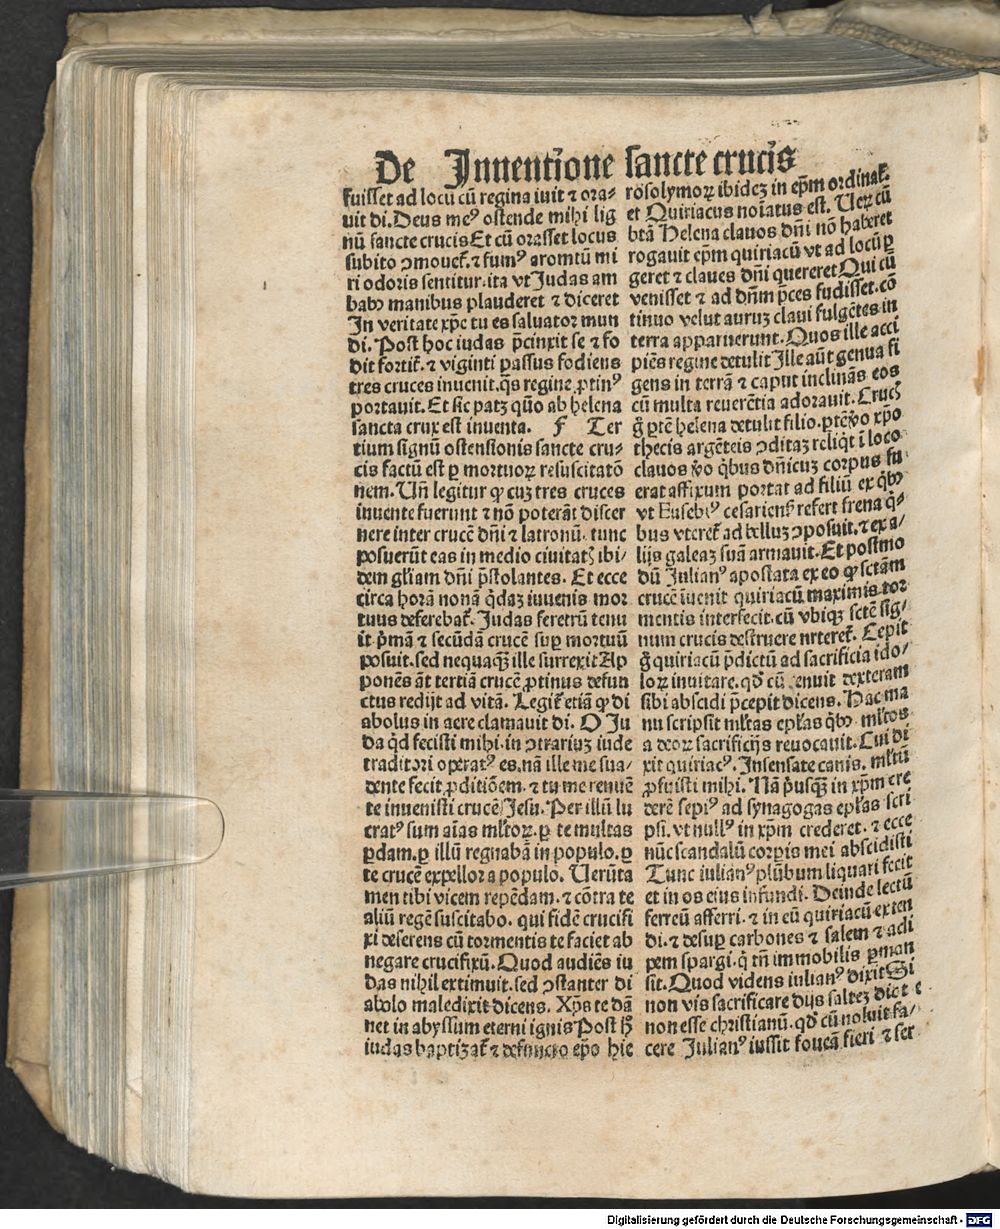 De Inuentione sancte crucis
fuisset ad locū cū regina iuit ⁊ ora-
uit di. Deus meꝰ ostende mihi lig
nū sancte crucis Et cū orasset locus
subito ꝯmouet᷑. ⁊ fumꝰ aromtū mi
ri odoris sentitur. ita vt Judas am
babꝰ manibus plauderet ⁊ diceret
In veritate xp̄e tu es saluator mun
di. Post hoc iudas p̄cinxit se ⁊ fo
dit fortit᷑. ⁊ viginti passus fodiens
tres cruces inuenit. q̄s regine ꝓtinꝰ
portauit. Et sic patꝫ quō ab helena
sancta crux est inuenta. F Ter
tium signū ostensionis sancte cru-
cis factū est ꝑ mortuoꝝ resuscitatō
nem. Un̄ legitur ꝙ cuꝫ tres cruces
inuente fuerunt ⁊ nō poterāt discer
nere inter crucē dn̄i ⁊ latronū. tunc
posuerūt eas in medio ciuitatꝭ ibi-
dem gl̄iam dn̄i p̄stolantes. Et ecce
circa horā nonā q̇daꝫ iuuenis mor
tuus deferebat᷑. Judas feretrū tenu
it p̄mā ⁊ secūdā crucē suꝑ mortuū
posuit. sed nequaꝗ̄ ille surrexit Ap
ponēs āt tertiā crucē ꝓtinus defun
ctus redijt ad vitā. Legit᷑ etiā ꝙ di
abolus in aere clamauit di. O Ju
da qd̄ fecisti mihi. in ꝯtrariuꝫ iude
traditori operatꝰ es. nā ille me sua/
dente fecit ꝓditiōem. ⁊ tu me renuē
te inuenisti crucē Jesu. Per illū lu
cratꝰ sum aīas ml̄toꝝ. ꝑ te multas
ꝑdam. ꝑ illū regnabā in populo. ꝑ
te crucē expellor a populo. Uerūta
men tibi vicem repēdam. ⁊ cōtra te
aliū regē suscitabo. qui fidē crucifi
xi deserens cū tormentis te faciet ab
negare crucifixū. Quod audiēs iu
das nihil extimuit. sed ꝯstanter di
abolo maledixit dicens. Xp̄s te dā
net in abyssum eterni ignis Post h̄
iudas baptizat᷑ ⁊ defuncto ep̄o hie
rosolymoꝝ ibidez in ep̄m ordinat᷑.
et Quiriacus noīatus est. Ueꝝ cū
btā Helena clauos dn̄i nō haberet
rogauit ep̄m quiriacū vt ad locū ꝑ
geret ⁊ claues dn̄i quereret Qui cū
venisset ⁊ ad dn̄m p̄ces fudisset. cō
tinuo velut auruꝫ claui fulgētes in
terra apparuerunt. Quos ille acci
piēs regine detulit Ille aūt genua fi
gens in terrā ⁊ caput inclināsꝰ eos
cū multa reuerētia adorauit. Crucꝭ
g̊ ꝑtē helena detulit filio. ꝑtē ꝟo xp̄o
thecis argēteis ꝯditaꝫ reliq̇t ī loco
clauos ꝟo q̇bus dn̄icuꝫ corpus fu
erat affixum portat ad filiū ex q̇bꝰ
vt Eusebiꝰ cesariensꝭ refert frena q̇-
bus vteret᷑ ad belluꝫ ꝯposuit. ⁊ ex a/
lijs galeaꝫ suā armauit. Et postmo
dū Julianꝰ apostata ex eo ꝙ sctām
crucē īuenit quiriacū maximis tor
mentis interfecit. cū vbiqꝫ sctē sig/
num crucis destruere nrteret᷑. Cepit
g̊ quiriacū p̄dictū ad sacrificia ido/
loꝝ inuitare. qd̄ cū renuit dexteram
sibi abscidi p̄cepit dicens. Hac ma
nu scripsit ml̄tas epl̄as q̇bꝰ ml̄tos
a deoꝝ sacrificijs reuocauit. Cui di
xit quiriacꝰ. Insensate canis. ml̄tū
ꝓfuisti mihi. Nā p̄usꝗ̄ in xp̄m cre
derē sepiꝰ ad synagogas epl̄as scri
psi. vt nullꝰ in xp̄m crederet. ⁊ ecce
nūc scandalū corpis mei abscidisti
Tunc iulianꝰ plūbum liquari fecit
et in os eius infundi. Deinde lectū
ferreū afferri. ⁊ in eū quiriacū exten
di. ⁊ desuꝑ carbones ⁊ salem ⁊ adi
pem spargi. q̇ tn̄ immobilis ꝑman
sit. Quod videns iulianꝰ dixit Si
non vis sacrificare dijs saltez dic te
non esse christianū. qd̄ cū noluit fa/
cere Julianꝰ iussit foueā fieri ⁊ ser
Digitalisierung gefördert durch die Deutsche Forschungsgemeinschaft - DFG